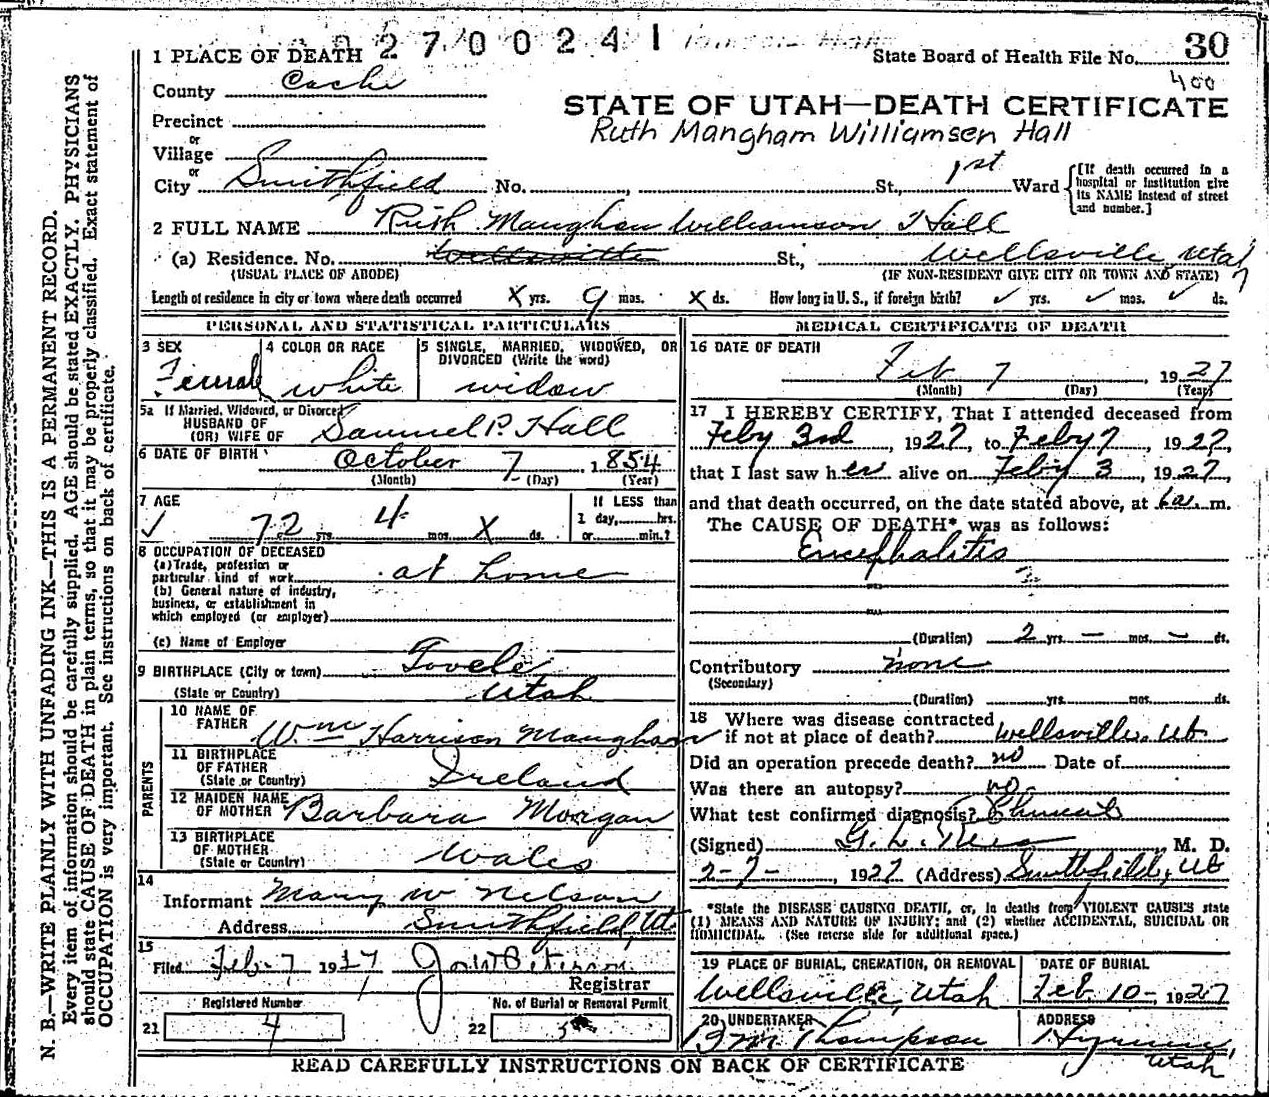 2700241
1 PLACE OF DEATH
State Board of Health File No. 30
400
County Cache
STATE OF UTAH—DEATH CERTIFICATE
Ruth Mangham Williamsen Hall
Precinct
or
Village
or
City Smithfield No. , St., 1st Ward
[If death occurred in a hospital or institution give its NAME instead of street and number.]
2 FULL NAME Ruth Maughan Williamson Hall
(a) Residence. No. Wellsville St., Wellsville, Utah
(USUAL PLACE OF ABODE) (IF NON-RESIDENT GIVE CITY OR TOWN AND STATE)
Length of residence in city or town where death occurred X yrs. 9 mos. X ds. How long in U. S., if foreign birth? ✓ yrs. ✓ mos. ✓ ds.
PERSONAL AND STATISTICAL PARTICULARS
3 SEX
Female
4 COLOR OR RACE
white
5 SINGLE, MARRIED, WIDOWED, OR
DIVORCED (Write the word)
widow
5a If Married, Widowed, or Divorced
HUSBAND OF
(OR) WIFE OF Samuel P. Hall
6 DATE OF BIRTH October 7, 1854
(Month) (Day) (Year)
7 AGE
✓ 72 yrs. 4 mos. X ds.
If LESS than
1 day, hrs.
or min.?
8 OCCUPATION OF DECEASED
(a) Trade, profession or
particular kind of work at home
(b) General nature of industry,
business, or establishment in
which employed (or employer)
(c) Name of Employer
9 BIRTHPLACE (City or town) Tooele
(State or Country) Utah
PARENTS
10 NAME OF
FATHER Wm Harrison Maughan
11 BIRTHPLACE
OF FATHER
(State or Country) Ireland
12 MAIDEN NAME
OF MOTHER Barbara Morgan
13 BIRTHPLACE
OF MOTHER
(State or Country) Wales
14
Informant Mary W Nelson
Address Smithfield, Ut
15
Filed Feb-7 1927
Registrar
Registered Number
21 4
No. of Burial or Removal Permit
22
MEDICAL CERTIFICATE OF DEATH
16 DATE OF DEATH
Feb 7, 1927
(Month) (Day) (Year)
17 I HEREBY CERTIFY, That I attended deceased from
Feby 3rd, 1927, to Feby 7, 1927,
that I last saw her alive on Feby 3, 1927,
and that death occurred, on the date stated above, at m.
The CAUSE OF DEATH* was as follows:
Encephalitis
(Duration) 2 yrs. — mos. — ds.
Contributory none
(Secondary)
(Duration) yrs. mos. ds.
18 Where was disease contracted
if not at place of death? Wellsville, Ut
Did an operation precede death? no Date of
Was there an autopsy? no
What test confirmed diagnosis?
(Signed) G. L. M. D.
2-7-, 1927 (Address) Smithfield, Ut
*State the DISEASE CAUSING DEATH, or, in deaths from VIOLENT CAUSES state
(1) MEANS AND NATURE OF INJURY; and (2) whether ACCIDENTAL, SUICIDAL OR
HOMICIDAL. (See reverse side for additional space.)
19 PLACE OF BURIAL, CREMATION, OR REMOVAL
Wellsville, Utah
DATE OF BURIAL
Feb 10-, 1927
20 UNDERTAKER
B M Thompson
ADDRESS
Hyrum,
Utah
READ CAREFULLY INSTRUCTIONS ON BACK OF CERTIFICATE
N. B.—WRITE PLAINLY WITH UNFADING INK—THIS IS A PERMANENT RECORD.
Every item of information should be carefully supplied. AGE should be stated EXACTLY. PHYSICIANS
should state CAUSE OF DEATH in plain terms, so that it may be properly classified. Exact statement of
OCCUPATION is very important. See instructions on back of certificate.